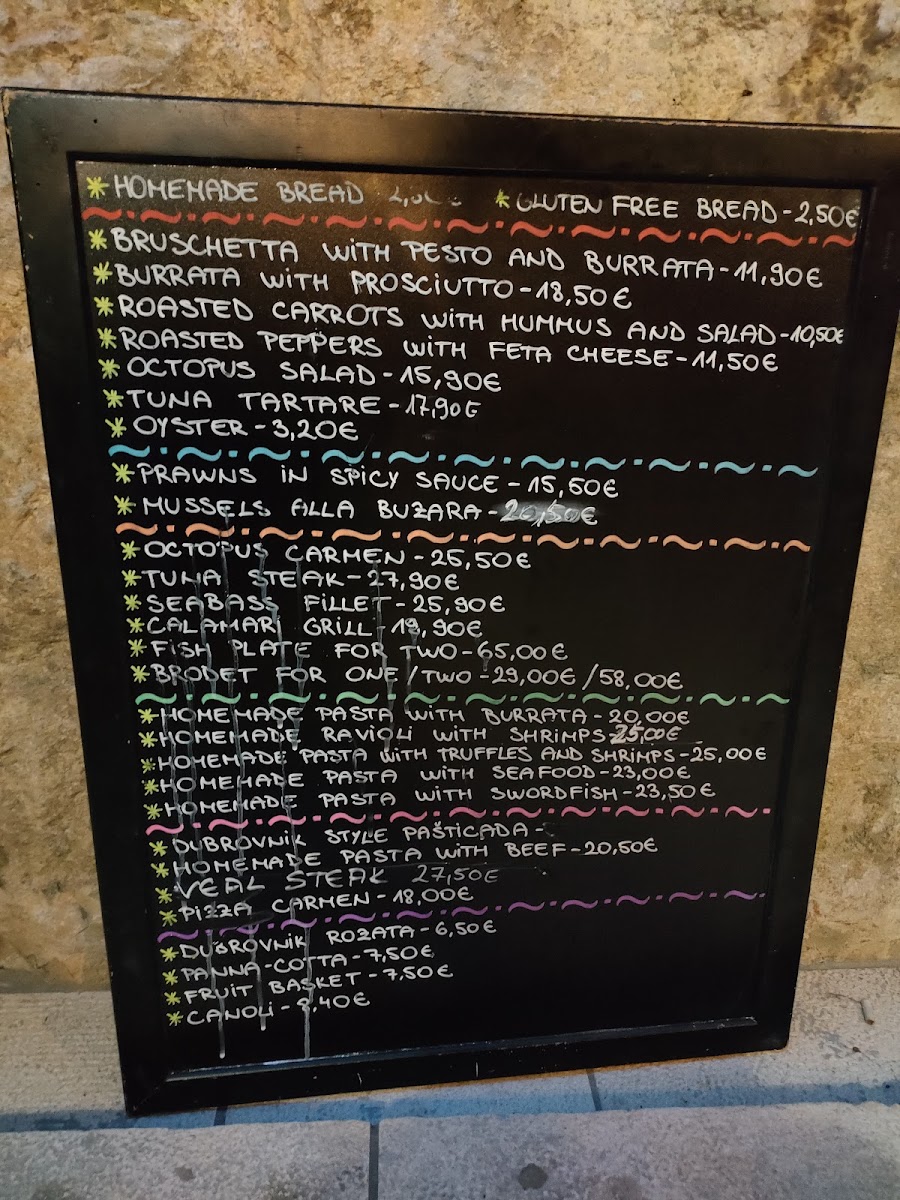 *HOMEMADE BREAD *GLUTEN FREE BREAD-2,50€
*BRUSCHETTA WITH PESTO AND BURRATA-11,90€
*BURRATA WITH PROSCIUTTO-18,50€
*ROASTED CARROTS WITH HUMMUS AND SALAD-10,50€
*ROASTED PEPPERS WITH FETA CHEESE-11,50€
*OCTOPUS SALAD-15,90€
*TUNA TARTARE-17,90€
*OYSTER-3,20€
*PRAWNS IN SPICY SAUCE-15,50€
*MUSSELS ALLA BUZARA-20,50€
*OCTOPUS CARMEN-25,50€
*TUNA STEAK-27,90€
*SEABASS FILLET-25,90€
*CALAMARI GRILL-19,90€
*FISH PLATE FOR TWO-65,00€
*BRODET FOR ONE/TWO-29,00€/58,00€
*HOMEMADE PASTA WITH BURRATA-20,00€
*HOMEMADE RAVIOLI WITH SHRIMPS 25,00€
*HOMEMADE PASTA WITH TRUFFLES AND SHRIMPS-25,00€
*HOMEMADE PASTA WITH SEAFOOD-23,00€
*HOMEMADE PASTA WITH SWORDFISH-23,50€
*DUBROVNIK STYLE PAŠTICADA-
*HOMEMADE PASTA WITH BEEF-20,50€
*VEAL STEAK 27,50€
*PIZZA CARMEN-18,00€
*DUBROVNIK ROZATA-6,50€
*PANNA-COTTA-7,50€
*FRUIT BASKET-7,50€
*CANOLI-8,40€